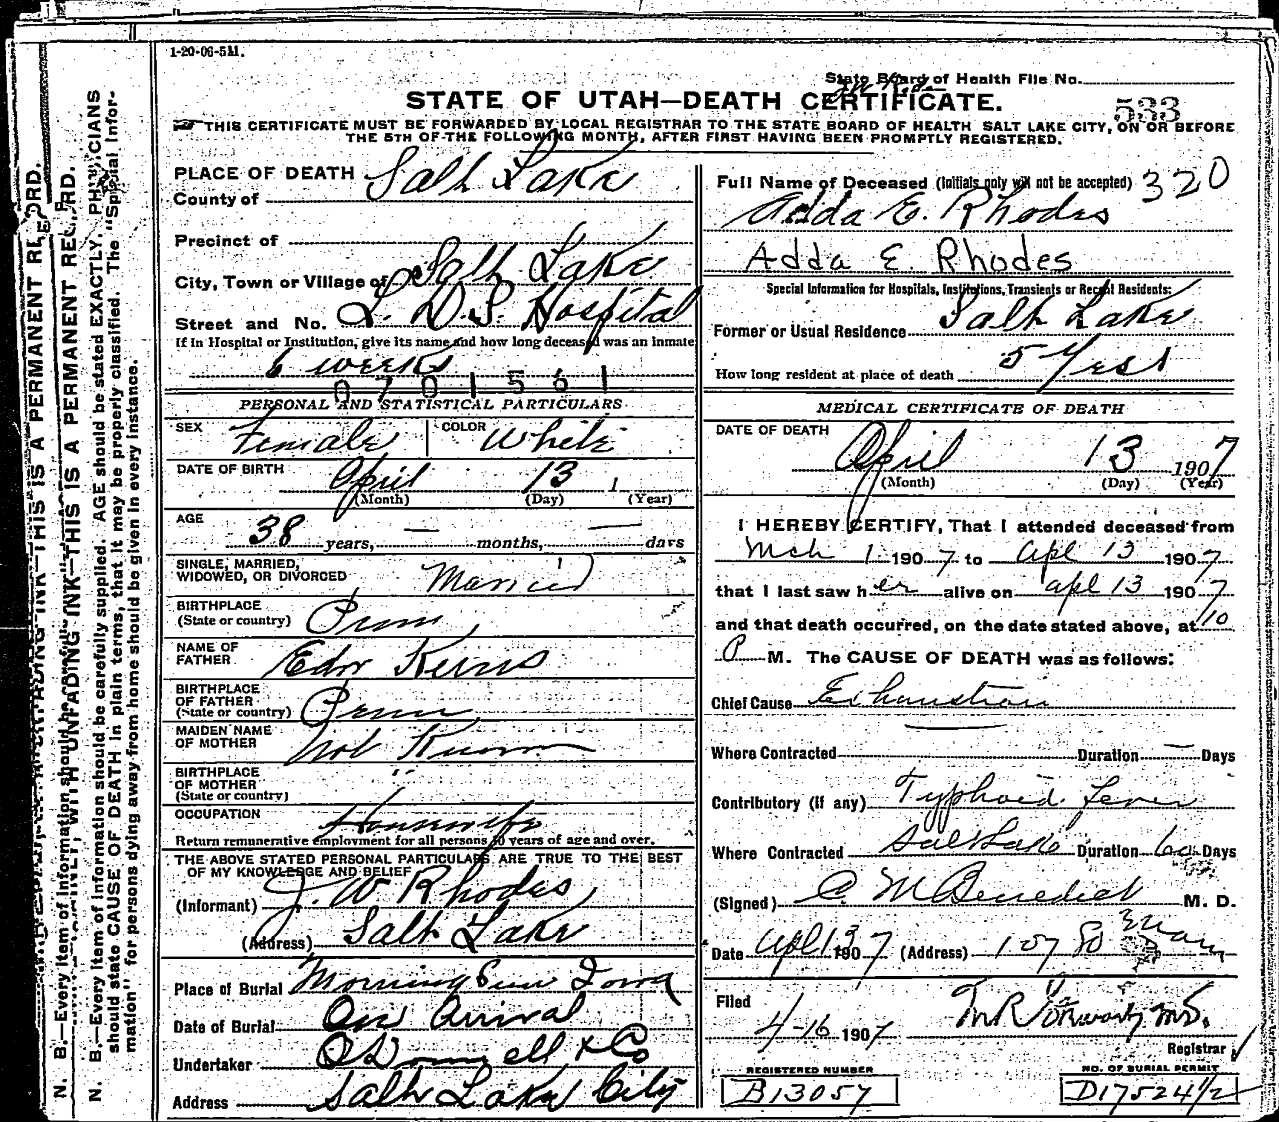 1-20-06-5M.
State Board of Health File No.
STATE OF UTAH—DEATH CERTIFICATE.
533
THIS CERTIFICATE MUST BE FORWARDED BY LOCAL REGISTRAR TO THE STATE BOARD OF HEALTH SALT LAKE CITY, ON OR BEFORE
THE 5TH OF THE FOLLOWING MONTH, AFTER FIRST HAVING BEEN PROMPTLY REGISTERED.
PLACE OF DEATH
County of Salt Lake
Precinct of
City, Town or Village of Salt Lake
Street and No. L. D. S. Hospital
If in Hospital or Institution, give its name and how long deceased was an inmate
6 weeks
0701561
PERSONAL AND STATISTICAL PARTICULARS
SEX Female COLOR White
DATE OF BIRTH April 13 1
(Month) (Day) (Year)
AGE
38 years, — months, — days
SINGLE, MARRIED,
WIDOWED, OR DIVORCED Married
BIRTHPLACE
(State or country) Penn
NAME OF
FATHER Edw Kerns
BIRTHPLACE
OF FATHER
(State or country) Penn
MAIDEN NAME
OF MOTHER Not Known
BIRTHPLACE
OF MOTHER "
(State or country)
OCCUPATION Housewife
Return remunerative employment for all persons 10 years of age and over.
THE ABOVE STATED PERSONAL PARTICULARS ARE TRUE TO THE BEST
OF MY KNOWLEDGE AND BELIEF
(Informant) J. W. Rhodes
(Address) Salt Lake
Place of Burial Morning Sun Iowa
Date of Burial On Arrival
Undertaker O'Donnell & Co
Address Salt Lake City
Full Name of Deceased (Initials only will not be accepted) 320
Adda E. Rhodes
Adda E. Rhodes
Special Information for Hospitals, Institutions, Transients or Recent Residents:
Former or Usual Residence Salt Lake
How long resident at place of death 5 Years
MEDICAL CERTIFICATE OF DEATH
DATE OF DEATH
April 13 1907
(Month) (Day) (Year)
I HEREBY CERTIFY, That I attended deceased from
Mch 1 1907 to Apl 13 1907
that I last saw her alive on Apl 13 1907
and that death occurred, on the date stated above, at 10
P M. The CAUSE OF DEATH was as follows:
Chief Cause Exhaustion
Where Contracted Duration — Days
Contributory (if any) Typhoid fever
Where Contracted Salt Lake Duration 60 Days
(Signed) C. M Benedict M. D.
Date Apl 13 1907 (Address) 107 So Main
Filed
4-16 1907
Registrar
REGISTERED NUMBER
B13057
NO. OF BURIAL PERMIT
D17524 1/2
N. B.—Every item of information should be carefully supplied. AGE should be stated EXACTLY. PHYSICIANS
should state CAUSE OF DEATH in plain terms, that it may be properly classified. The "Special Infor-
mation" for persons dying away from home should be given in every instance.
WITH UNFADING INK—THIS IS A PERMANENT RECORD.